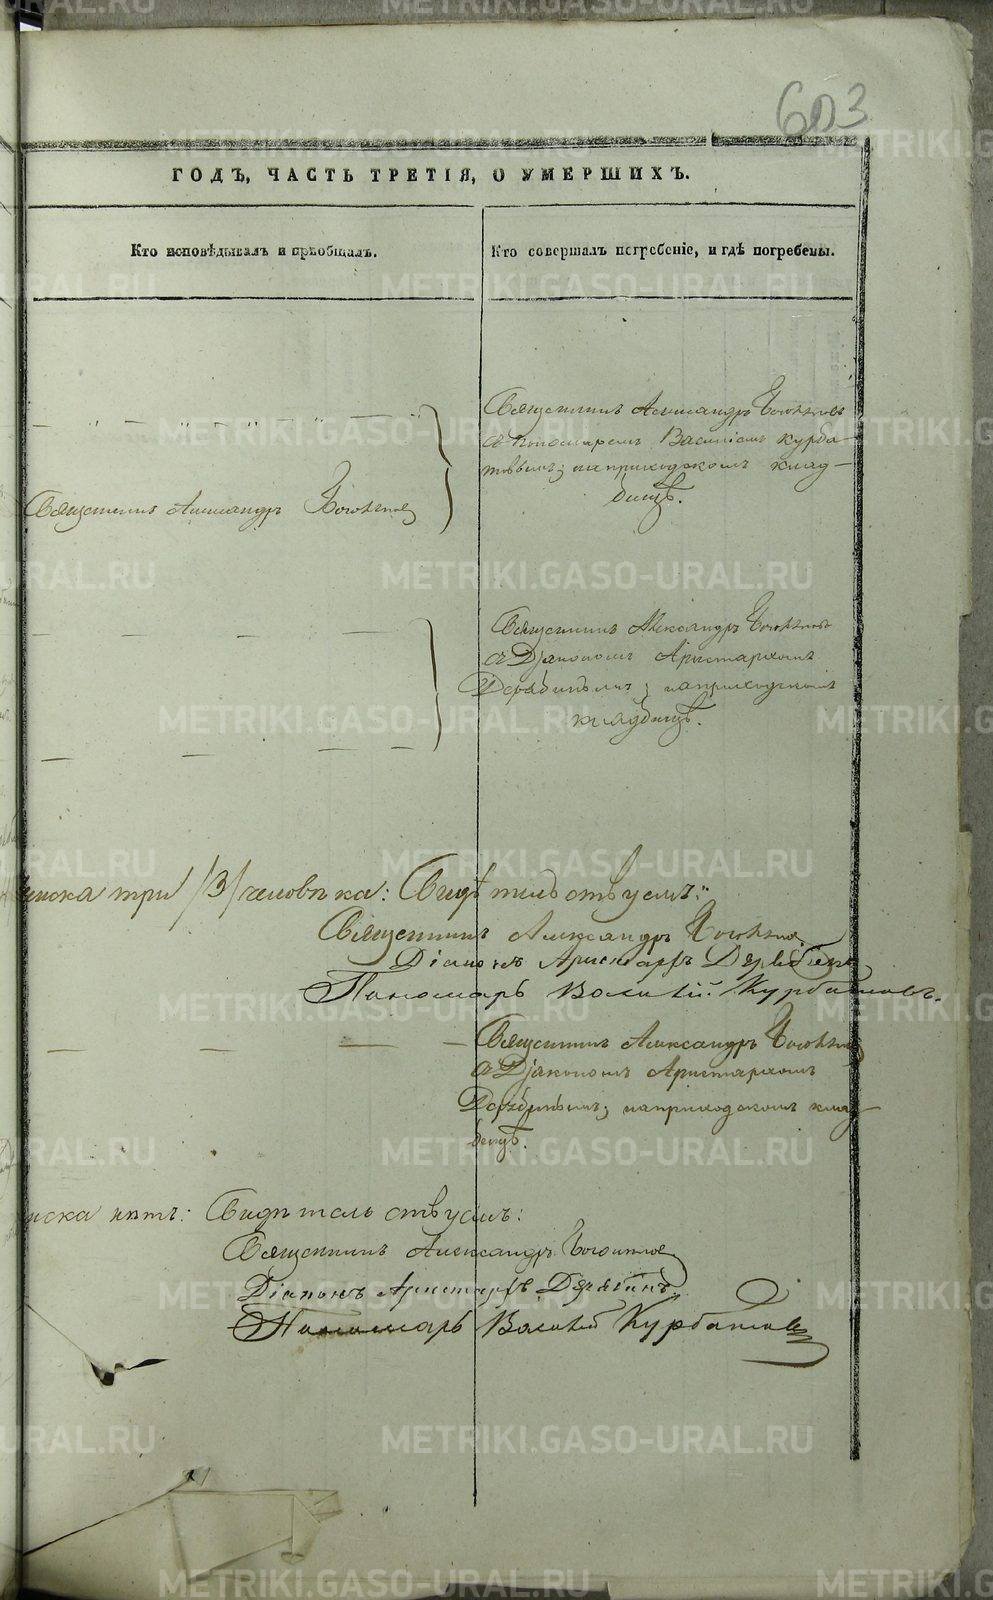 603
ГОДЪ, ЧАСТЬ ТРЕТІЯ, О УМЕРШИХЪ.
Кто исповѣдывалъ и пріобщалъ.
Кто совершалъ погребеніе, и гдѣ погребены.
Священникъ Александръ
съ Пономаремъ Василіемъ Курба-
товымъ; на приходскомъ клад-
бищѣ.
Священникъ Александръ
Священникъ Александръ
съ Діакономъ Аристархомъ
Дерябинымъ; на приходскомъ
кладбищѣ.
три /3/ человѣка: Свидѣтельствуемъ:
Священникъ Александръ
Діаконъ Аристархъ Дерябинъ
Пономарь Василій Курбатовъ.
Священникъ Александръ
съ Діакономъ Аристархомъ
Дерябинымъ; на приходскомъ клад-
бищѣ.
нѣтъ: Свидѣтельствуемъ:
Священникъ Александръ
Діаконъ Аристархъ Дерябинъ
Пономарь Василій Курбатовъ
METRIKI.GASO-URAL.RU